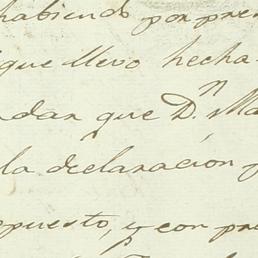 habiendo por pre
que llevo hecha
ndar que D.n Ma
la declaracion p
puesto, y con pre